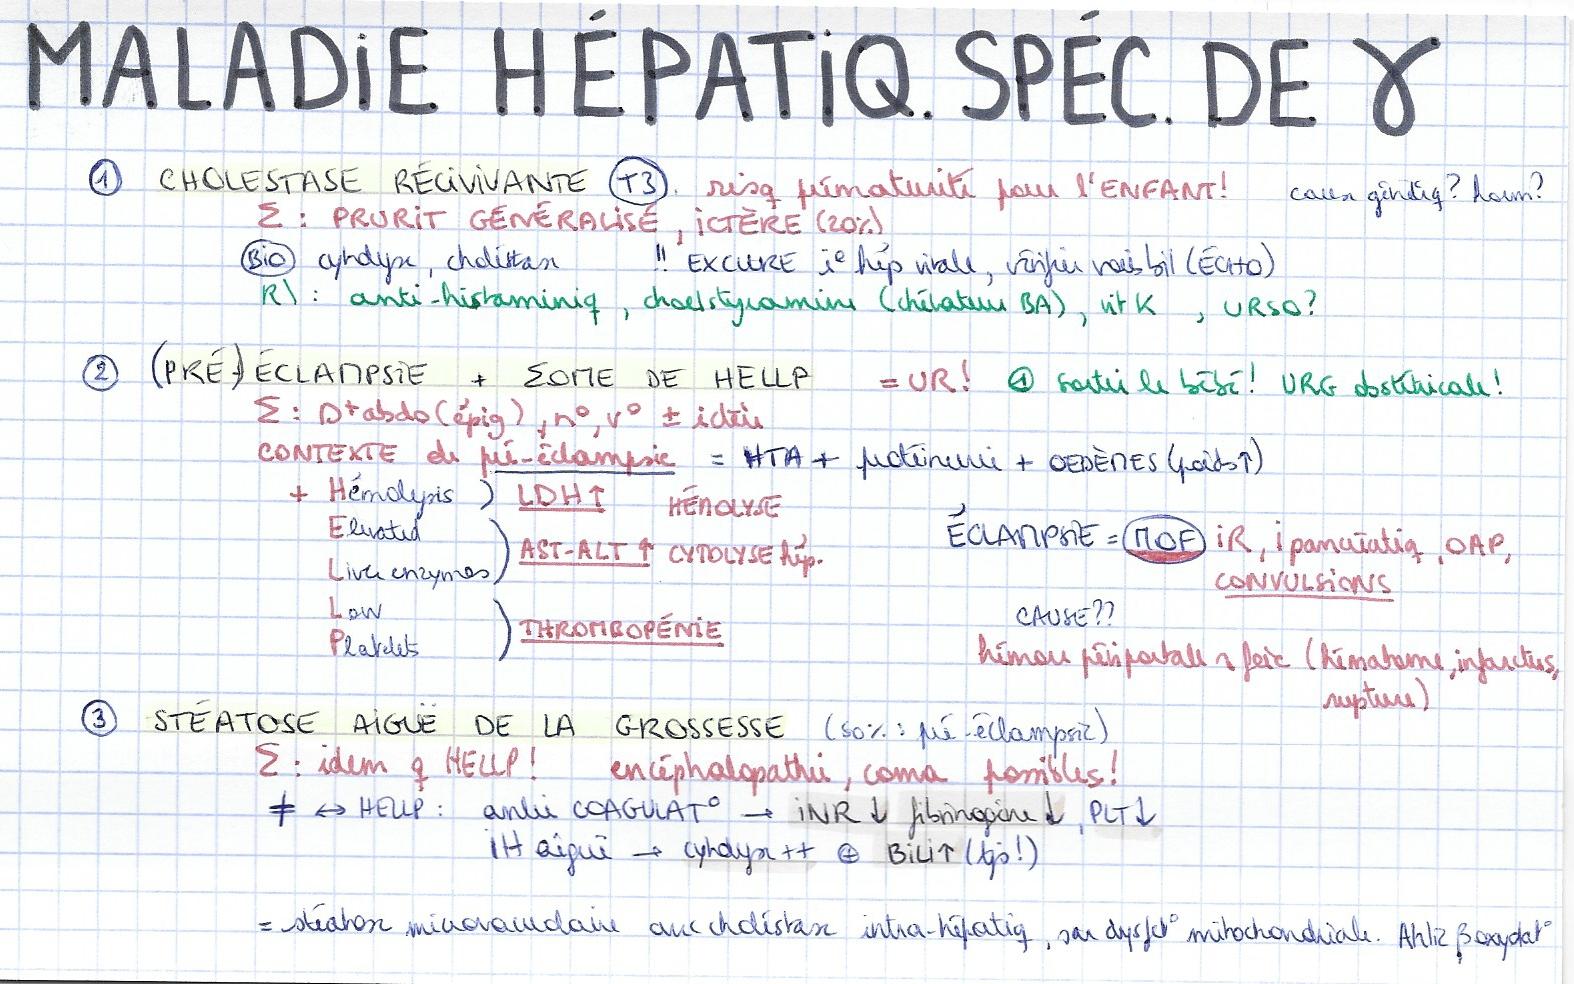 MALADIE HÉPATIQ. SPÉC. DE γ
① CHOLESTASE RÉCIVIVANTE (T3). risq prématurité pour l'ENFANT! cause génétiq? horm?
Σ : PRURIT GÉNÉRALISÉ, ICTÈRE (20%)
BIO cytolyse, cholestase !! EXCLURE i° hép virale, vérifier voies bil (ÉCHO)
R\ : anti-histaminiq, choelstyramine (chélateur BA), vit K, URSO?
② (PRÉ-)ÉCLAMPSIE + ΣOME DE HELLP = UR! ④ sortir le bébé! URG obstétricale!
Σ : D+ abdo (épig), n°, v° ± ictère
CONTEXTE de pré-éclampsie = HTA + protéinurie + OEDÈMES (poids↑)
+ Hémolysis ) LDH↑ HÉMOLYSE
Elevated
Liver enzymes ) AST-ALT ↑ CYTOLYSE hép.
Low
Platelets ) THROMBOPÉNIE
ÉCLAMPSIE = MOF iR, i pancréatiq, OAP,
CONVULSIONS
CAUSE??
hémorr périportale foie (hématome, infarctus,
rupture)
③ STÉATOSE AIGUË DE LA GROSSESSE (50% : pré-éclampsie)
Σ : idem q HELLP! encéphalopathie, coma possibles!
≠ ↔ HELLP : COAGULAT° → INR ↓ fibrinogène ↓, PLT ↓
IH aiguë → cytolyse ++ ⊕ BILI↑ (tjs!)
= stéatose microvacuolaire avec cholestase intra-hépatiq, sur dysfct° mitochondriale. β oxydat°